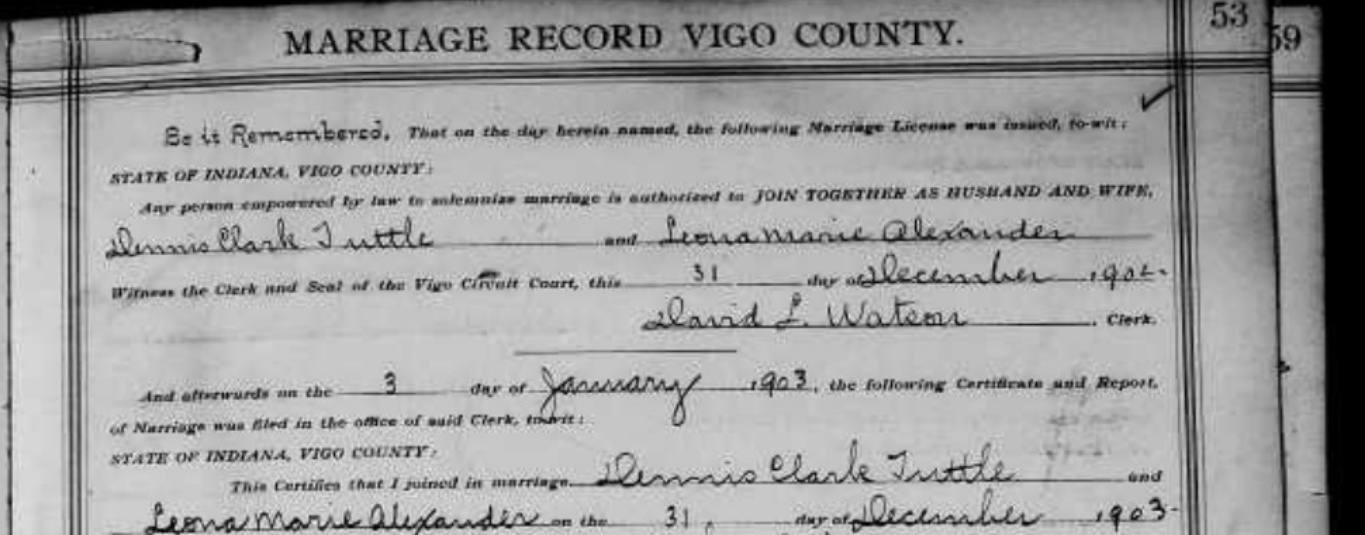 53
59
MARRIAGE RECORD VIGO COUNTY.
Be it Remembered, That on the day herein named, the following Marriage License was issued, to-wit:
STATE OF INDIANA, VIGO COUNTY:
Any person empowered by law to solemnize marriage is authorized to JOIN TOGETHER AS HUSBAND AND WIFE,
Dennis Clark Tuttle and Leona Marie Alexander
Witness the Clerk and Seal of the Vigo Circuit Court, this 31 day of December 1902.
David L. Watson, Clerk.
And afterwards on the 3 day of January 1903, the following Certificate and Report,
of Marriage was filed in the office of said Clerk, to-wit:
STATE OF INDIANA, VIGO COUNTY:
This Certifies that I joined in marriage Dennis Clark Tuttle and
Leona Marie Alexander on the 31, day of December 1903.